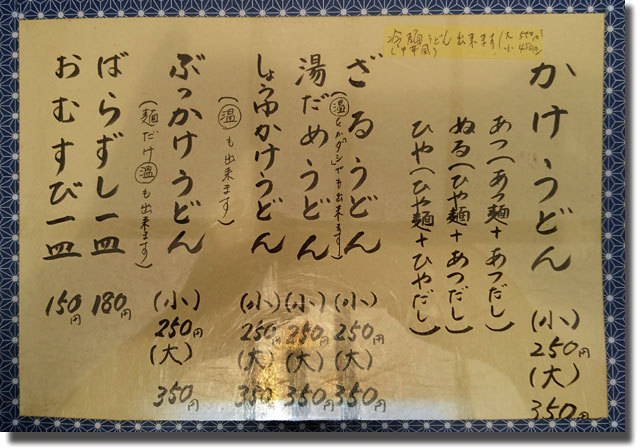 冷麺うどん出来ます(大 550円
(中華風) 小 450円)
かけうどん (小) 250円 (大) 350円
あつ(あつ麺+あつだし)
ぬる(ひや麺+あつだし)
ひや(ひや麺+ひやだし)
ざるうどん (小) 250円 (大) 350円
湯だめうどん (小) 250円 (大) 350円
しょうゆかけうどん (小) 250円 (大) 350円
(温も出来ます)
ぶっかけうどん (小) 250円 (大) 350円
(麺だけ温も出来ます)
ばらずし一皿 180円
おむすび一皿 150円